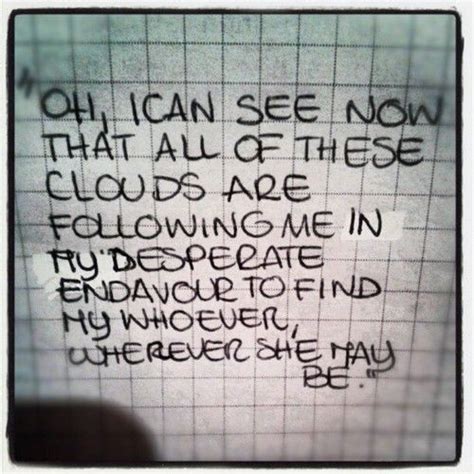 "OH, I CAN SEE NOW
THAT ALL OF THESE
CLOUDS ARE
FOLLOWING ME IN
MY DESPERATE
ENDAVOUR TO FIND
MY WHOEVER,
WHEREVER SHE MAY
BE."